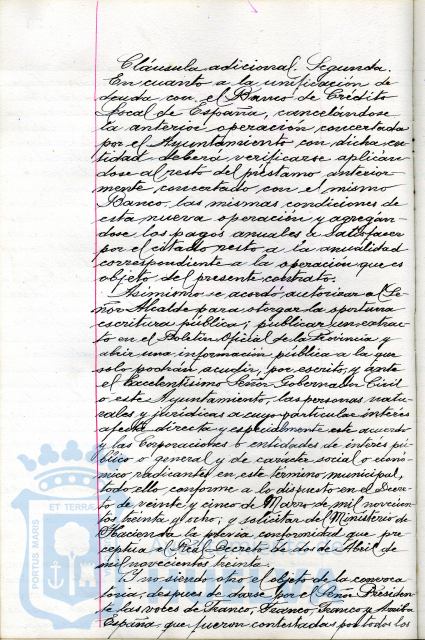 Cláusula adicional. Segunda.
En cuanto a la unificación de
deuda con el Banco de Crédito
Local de España, cancelándose
la anterior operación concertada
por el Ayuntamiento con dicha en-
tidad deberá verificarse aplicán-
dose al resto del préstamo anterior-
mente, concertado con el mismo
Banco las mismas condiciones de
esta nueva operación y agregán-
dose los pagos anuales a satisfacer
por el citado resto a la anualidad
correspondiente a la operación que es
objeto del presente contrato.
Asimismo se acordó autorizar al Se-
ñor Alcalde para otorgar la oportuna
escritura pública; publicar un extrac-
to en el Boletín Oficial de la Provincia y
abrir una información pública a la que
solo podrán acudir, por escrito, y ante
el Excelentísimo Señor Gobernador Civil
o este Ayuntamiento, las personas natu-
rales y jurídicas a cuyo particular interés
afecte directa y especialmente este acuerdo
y las Corporaciones o entidades de interés pú-
blico o general y de carácter social o econó-
mico radicantes en este término municipal,
todo ello conforme a lo dispuesto en el Decre-
to de veinte y cinco de Marzo de mil novecien-
tos treinta y ocho; y solicitar del Ministerio de
Hacienda la previa conformidad que pre-
ceptua el Real Decreto de dos de Abril de
mil novecientos treinta.
Y no siendo otro el objeto de la convoca-
toria, despues de darse por el Señor Presiden-
te las voces de Franco, Franco, Franco y Arriba
España, que fueron contestadas por todos los
PORTUS MARIS
ET TERRÆ